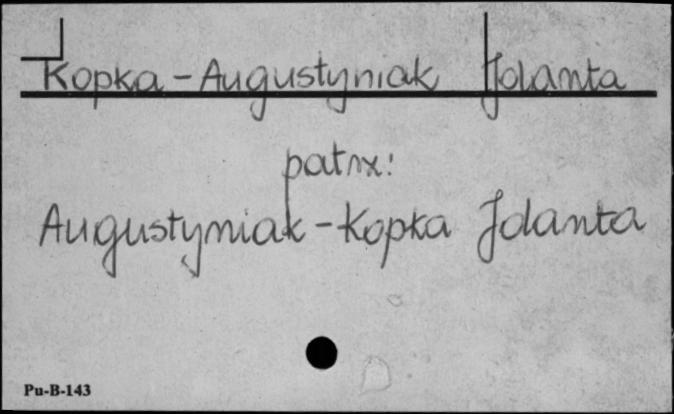 Kopka-Augustyniak Jolanta
patrz:
Augustyniak-Kopka Jolanta
Pu-B-143